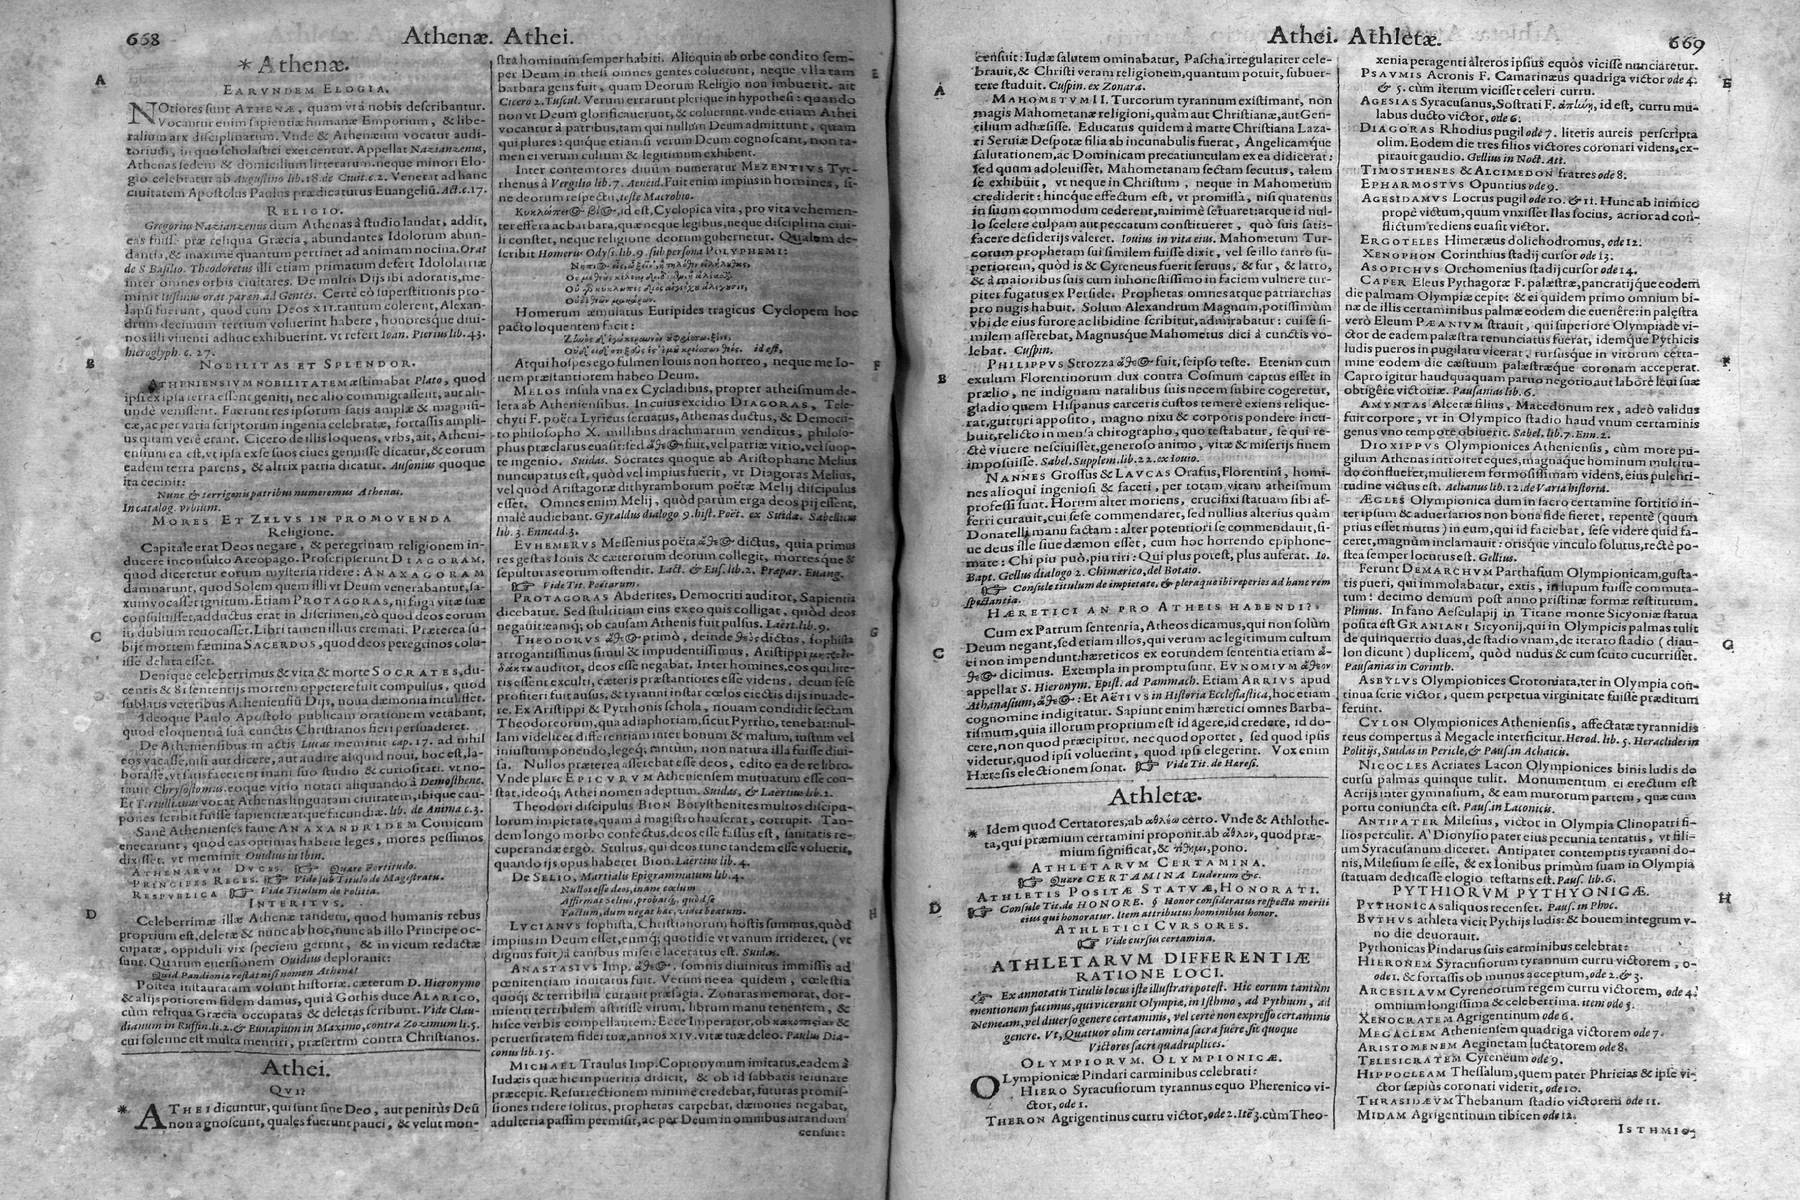 668
Athenæ. Athei.
* Athenæ.
EARVNDEM ELOGIA.
NOtiores sunt ATHENÆ, quam vt à nobis describantur.
Vocantur enim sapientiæ humanæ Emporium, & libe-
ralium arx disciplinarum. Vnde & Athenæum vocatur audi-
torium, in quo scholastici exercentur. Appellat Nazianzenus,
Athenas sedem & domicilium litterarum. neque minori Elo-
gio celebratur ab Augustino lib. 18. de Ciuit. c. 2. Venerat ad hanc
ciuitatem Apostolus Paulus prædicaturus Euangeliū. Act. c. 17.
RELIGIO.
Gregorius Nazianzenus dum Athenas à studio laudat, addit,
eas fuisse præ reliqua Græcia, abundantes Idolorum abun-
dantia, & maxime quantum pertinet ad animam nociua. Orat
de S Basilio. Theodoretus illi etiam primatum defert Idololatriæ
inter omnes orbis ciuitates. De multis Dijs ibi adoratis, me-
minit Iustinus orat. paræn. ad Gentes. Certè eò superstitionis pro-
lapsi fuerunt, quod cum Deos XII. tantum colerent, Alexan-
drum decimum tertium voluerint habere, honoresque diui-
nos illi viuenti adhuc exhibuerint. vt refert Ioan. Pierius lib. 43.
hieroglyph. c. 27.
NOBILITAS ET SPLENDOR.
ATHENIENSIVM NOBILITATEM æstimabat Plato, quod
ipsi ex ipsa terra essent geniti, nec alio commigrassent, aut ali-
unde venissent. Fuerunt res ipsorum satis amplæ & magnifi-
cæ, ac per varia scriptorum ingenia celebratæ, fortassis ampli-
us quàm verè erant. Cicero de illis loquens, vrbs, ait, Atheni-
ensium ea est, vt ipsa ex se suos ciues genuisse dicatur, & eorum
eadem terra parens, & altrix patria dicatur. Ausonius quoque
ita cecinit:
Nunc & terrigenis patribus numeremus Athenas.
In catalog. vrbium.
MORES ET ZELVS IN PROMOVENDA
Religione.
Capitale erat Deos negare, & peregrinam religionem in-
ducere inconsulto Areopago. Proscripserunt DIAGORAM,
quod diceretur eorum mysteria ridere: ANAXAGORAM
damnarunt, quod Solem quem illi vt Deum venerabantur, sa-
xum vocasset ignitum. Etiam PROTAGORAS, ni fuga vitæ suæ
consuluisset, adductus erat in discrimen, eò quod deos eorum
in dubium reuocasset. Libri tamen illius cremati. Præterea su-
bijt mortem fæmina SACERDOS, quod deos peregrinos colu-
isse delata esset.
Denique celeberrimus & vita & morte SOCRATES, du-
centis & 81 sententijs mortem oppetere fuit compulsus, quod
sublatis veteribus Atheniensiū Dijs, noua dæmonia intulisset.
Ideoque Paulo Apostolo publicam orationem vetabant,
quod eloquentiâ suâ cunctis Christianos fieri persuaderet.
De Atheniensibus in actis Lucas meminit cap. 17. ad nihil
eos vacasse, nisi aut dicere, aut audire aliquid noui, hoc est, la-
borasse, vt satisfacerent inani suo studio & curiositati. vt no-
tauit Chrysostomus. eoque vitio notati aliquando à Demosthene.
Et Tertullianus vocat Athenas linguatam ciuitatem, ibique cau-
pones scribit fuisse sapientiæ atque facundiæ. lib. de Anima c. 3.
Sanè Athenienses fame ANAXANDRIDEM Comicum
enecarunt, quòd eas optimas habere leges, mores pessimos
dixisset. vt meminit Ouidius in Ibin.
ATHENARVM DVCES. ☞ Quære Fortitudo.
PRINCIPES REGES. ☞ Vide sub Titulo de Magistratu.
RESPVBLICA ☞ Vide Titulum de Politia.
INTERITVS.
Celeberrimæ illæ Athenæ tandem, quod humanis rebus
proprium est, deletæ & nunc ab hoc, nunc ab illo Principe oc-
cupatæ, oppiduli vix speciem gerunt, & in vicum redactæ
sunt. Quarum euersionem Ouidius deplorauit:
Quid Pandioniæ restat nisi nomen Athenæ?
Postea instauratam volunt historiæ. cæterum D. Hieronymo
& alijs potiorem fidem damus, qui à Gothis duce ALARICO,
cùm reliqua Græcia occupatas & deletas scribunt. Vide Clau-
dianum in Ruffin. li. 2. & Eunapium in Maximo, contra Zozimum li. 5.
cui solenne est multa mentiri, præsertim contra Christianos.
Athei.
QVI?
* ATHEI dicuntur, qui sunt sine Deo, aut penitùs Deū
non agnoscunt, quales fuerunt pauci, & velut mon-
stra hominum semper habiti. Alioquin ab orbe condito sem-
per Deum in thesi omnes gentes coluerunt, neque vlla tam
barbara gens fuit, quam Deorum Religio non imbuerit. ait
Cicero 2. Tuscul. Verum errarunt plerique in hypothesi: quando
non vt Deum glorificauerunt, & coluerunt. vnde etiam Athei
vocantur à patribus, tam qui nullum Deum admittunt, quam
qui plures: quique etiam si verum Deum cognoscant, non ta-
men ei verum cultum & legitimum exhibent.
Inter contemtores diuûm numeratur MEZENTIVS Tyr-
rhenus à Vergilio lib. 7. Aeneid. Fuit enim impius in homines, si-
ne deorum respectu, teste Macrobio.
id est, Cyclopica vita, pro vita vehemen-
ter effera ac barbara, quæ neque legibus, neque disciplina ciui-
li constet, neque religione deorum gubernetur. Qualem de-
scribit Homerus Odyss. lib. 9. sub persona POLYPHEMI:
Homerum æmulatus Euripides tragicus Cyclopem hoc
pacto loquentem facit:
id est,
Atqui hospes ego fulmen Iouis non horreo, neque me Io-
uem præstantiorem habeo Deum.
MELOS insula vna ex Cycladibus, propter atheismum de-
leta ab Atheniensibus. In cuius excidio DIAGORAS, Tele-
chyti F. poëta Lyricus seruatus, Athenas ductus, & Democri-
to philosopho X. millibus drachmarum venditus, philoso-
phus præclarus euasit: sed ἄθεος fuit, vel patriæ vitio, vel suop-
te ingenio. Suidas. Socrates quoque ab Aristophane Melius
nuncupatus est, quòd vel impius fuerit, vt Diagoras Melius,
vel quòd Aristagoræ dithyramborum poëtæ Melij discipulus
esset. Omnes enim Melij, quòd parum erga deos pij essent,
malè audiebant. Gyraldus dialogo 9. hist. Poët. ex Suida. Sabellius
lib. 3. Ennead. 3.
EVHEMERVS Messenius poëta ἄθεος dictus, quia primus
res gestas Iouis & cæterorum deorum collegit, mortesque &
sepulturas eorum ostendit. Lact. & Eus. lib. 2. Præpar. Euang.
☞ Vide Tit. Poëtarum.
PROTAGORAS Abderites, Democriti auditor, Sapientia
dicebatur. Sed stultitiam eius ex eo quis colligat, quòd deos
negauit: eamq; ob causam Athenis fuit pulsus. Laërt. lib. 9.
THEODORVS ἄθεος primò, deinde θεὸς dictus, sophista
arrogantissimus simul & impudentissimus, Aristippi
auditor, deos esse negabat. Inter homines, eos qui lite-
ris essent exculti, cæteris præstantiores esse videns, deum sese
profiteri fuit ausus, & tyranni instar cœlos eiectis dijs inuade-
re. Ex Aristippi & Pyrrhonis schola, nouam condidit sectam
Theodoreorum, qua adiaphoriam, sicut Pyrrho, tenebat: nul-
lam videlicet differentiam inter bonum & malum, iustum vel
iniustum ponendo, legeq; tantùm, non natura illa fuisse diui-
sa. Nullos præterea asserebat esse deos, edito ea de re libro.
Vnde plura EPICVRVM Atheniensem mutuatum esse con-
stat, ideoq; Athei nomen adeptum. Suidas, & Laërtius lib. 2.
Theodori discipulus BION Borysthenites multos discipu-
lorum impietate, quam à magistro hauserat, corrupit. Tan-
dem longo morbo confectus, deos esse fassus est, sanitatis re-
cuperandæ ergò. Stultus, qui deos tunc tandem esse voluerit,
quando ijs opus haberet Bion. Laërtius lib. 4.
De SELIO, Martialis Epigrammatum lib. 4.
Nullos esse deos, inane cœlum
Affirmat Selius, probatq́, quòd se
Factum, dum negat hæc, videt beatum.
LVCIANVS sophista, Christianorum hostis summus, quòd
impius in Deum esset, eumq; quotidie vt vanum irrideret, (vt
dignus fuit,) à canibus misere laceratus est. Suidas.
ANASTASIVS Imp. ἄθεος, somnis diuinitus immissis ad
pœnitentiam inuitatus fuit. Verum nec ea quidem, cœlestia
quoq; & terribilia curauit præsagia. Zonaras memorat, dor-
mienti terribilem astitisse virum, librum manu tenentem, &
hisce verbis compellantem: Ecce Imperator, ob κακοπιστίαν &
peruersitatem fidei tuæ, annos XIV. vitæ tuæ deleo. Paulus Dia-
conus lib. 15.
MICHAEL Traulus Imp. Copronymum imitatus, eadem à
Iudæis quæ hic in pueritia didicit, & ob id sabbatis ieiunare
præcepit. Resurrectionem minimè credebat, futuras promis-
siones ridere solitus, prophetas carpebat, dæmones negabat,
adulteria passim permisit, ac per Deum in omnibus iurandum
censuit:
A
B
C
D
E
F
G
H
Athei. Athletæ.
669
censuit: Iudæ salutem ominabatur, Pascha irregulariter cele-
brauit, & Christi veram religionem, quantum potuit, subuer-
tere studuit. Cuspin. ex Zonara.
MAHOMETVM II. Turcorum tyrannum existimant, non
magis Mahometanæ religioni, quàm aut Christianæ, aut Gen-
tilium adhæsisse. Educatus quidem à matre Christiana Laza-
ri Seruiæ Despotæ filia ab incunabulis fuerat, Angelicamque
salutationem, ac Dominicam precatiunculam ex ea didicerat:
sed quam adoleuisset, Mahometanam sectam secutus, talem
se exhibuit, vt neque in Christum, neque in Mahometum
crediderit: hincque effectum est, vt promissa, nisi quatenus
in suum commodum cederent, minimè seruaret: atque id nul-
lo scelere culpam aut peccatum constitueret, quò suis satis-
facere desiderijs valeret. Iouius in vita eius. Mahometum Tur-
corum prophetam sui similem fuisse dixit, vel se illo tanto su-
periorem, quòd is & Cyreneus fuerit seruus, & fur, & latro,
& à maioribus suis cum inhonestissimo in faciem vulnere tur-
piter fugatus ex Perside. Prophetas omnes atque patriarchas
pro nugis habuit. Solum Alexandrum Magnum, potissimùm
vbi de eius furore ac libidine scribitur, admirabatur: cui se si-
milem asserebat, Magnusque Mahometus dici à cunctis vo-
lebat. Cuspin.
PHILIPPVS Strozza ἄθεος fuit, seipso teste. Etenim cum
exulum Florentinorum dux contra Cosmum captus esset in
prælio, ne indignam natalibus suis necem subire cogeretur,
gladio quem Hispanus carceris custos temerè exiens relique-
rat, gutturi apposito, magno nixu & corporis pondere incu-
buit, relicto in mensa chirographo, quo testabatur, se qui re-
ctè viuere nesciuisset, generoso animo, vitæ & miserijs finem
imposuisse. Sabel. Supplem. lib. 22. ex Iouio.
NANNES Grossus & LAVCAS Orafus, Florentini, homi-
nes alioqui ingeniosi & faceti, per totam vitam atheismum
professi sunt. Horum alter moriens, crucifixi statuam sibi af-
ferri curauit, cui sese commendaret, sed nullius alterius quàm
Donatelli manu factam: alter potentiori se commendauit, si-
ue deus ille siue dæmon esset, cum hoc horrendo epiphone-
mate: Chi piu può, piu tiri: Qui plus potest, plus auferat. Io.
Bapt. Gellus dialogo 2. Chimærico, del Botaio.
☞ Consule titulum de impietate, & pleraque ibi reperies ad hanc rem
spectantia.
HÆRETICI AN PRO ATHEIS HABENDI?
Cum ex Patrum sententia, Atheos dicamus, qui non solùm
Deum negant, sed etiam illos, qui verum ac legitimum cultum
ei non impendunt: hæreticos ex eorundem sententia etiam ἀ-
θέους dicimus. Exempla in promptu sunt. EVNOMIVM ἄθεον
appellat S. Hieronym. Epist. ad Pammach. Etiam ARRIVS apud
Athanasium, ἄθεος: Et AËTIVS in Historia Ecclesiastica, hoc etiam
cognomine indigitatur. Sapiunt enim hæretici omnes Barba-
rismum, quia illorum proprium est id agere, id credere, id do-
cere, non quod præcipitur. nec quod oportet, sed quod ipsis
videtur, quod ipsi voluerint, quod ipsi elegerint. Vox enim
Hæresis electionem sonat. ☞ Vide Tit. de Hæresi.
Athletæ.
* Idem quod Certatores, ab ἀθλέω certo. Vnde & Athlothe-
ta, qui præmium certamini proponit. ab ἆθλον, quod præ-
mium significat, & τίθημι, pono.
ATHLETARVM CERTAMINA.
☞ Quære CERTAMINA Ludorum &c.
ATHLETIS POSITÆ STATVÆ, HONORATI.
☞ Consule Tit. de HONORE. § Honor consideratus respectu meriti
eius qui honoratur. Item attributus hominibus honor.
ATHLETICI CVRSORES.
☞ Vide cursus certamina.
ATHLETARVM DIFFERENTIÆ
RATIONE LOCI.
☞ Ex annotatis Titulis locus iste illustrari potest. Hic eorum tantùm
mentionem facimus, qui vicerunt Olympiæ, in Isthmo, ad Pythium, ad
Nemeam, vel diuerso genere certaminis, vel certè non expresso certaminis
genere. Vt, Quatuor olim certamina sacra fuêre, sit quoque
Victores sacri quadruplices.
OLYMPIORVM. OLYMPIONICÆ.
OLympionicæ Pindari carminibus celebrati:
HIERO Syracusiorum tyrannus equo Pherenico vi-
ctor, ode 1.
THERON Agrigentinus curru victor, ode 2. Itē 3. cùm Theo-
xenia peragenti alteros ipsius equos vicisse nunciaretur.
PSAVMIS Acronis F. Camarinæus quadriga victor ode 4.
& 5. cùm iterum vicisset celeri curru.
AGESIAS Syracusanus, Sostrati F. ἀπλώῃ, id est, curru mu-
labus ducto victor, ode 6.
DIAGORAS Rhodius pugil ode 7. literis aureis perscripta
olim. Eodem die tres filios victores coronari videns, ex-
pirauit gaudio. Gellius in Noct. Att.
TIMOSTHENES & ALCIMEDON fratres ode 8.
EPHARMOSTVS Opuntius ode 9.
AGESIDAMVS Locrus pugil ode 10. & 11. Hunc ab inimico
propè victum, quum vnxisset Ilas socius, acrior ad con-
flictum rediens euasit victor.
ERGOTELES Himeræus dolichodromus, ode 12.
XENOPHON Corinthius stadij cursor ode 13.
ASOPICHVS Orchomenius stadij cursor ode 14.
CAPER Eleus Pythagoræ F. palæstræ, pancratij́que eodem
die palmam Olympiæ cepit: & ei quidem primo omnium bi-
næ de illis certaminibus palmæ eodem die euenêre: in palęstra
verò Eleum PÆANIVM strauit, qui superiore Olympiade vi-
ctor de eadem palæstra renunciatus fuerat, idemque Pythicis
ludis pueros in pugilatu vicerat, rursusque in virorum certa-
mine eodem die cæstuum palæstræque coronam acceperat.
Capro igitur haudquaquam paruo negotio, aut labore leui suæ
obtigêre victoriæ. Pausanias lib. 6.
AMYNTAS Alcetæ filius, Macedonum rex, adeò validus
fuit corpore, vt in Olympico stadio haud vnum certaminis
genus vno tempore obiuerit. Sabel. lib. 7. Enn. 2.
DIOXIPPVS Olympionices Atheniensis, cùm more pu-
gilum Athenas introiret eques, magnaque hominum multitu-
do conflueret, mulierem formosissimam videns, eius pulchri-
tudine victus est. Aelianus lib. 12. de Varia historia.
ÆGLES Olympionica dum in sacro certamine sortitio in-
ter ipsum & aduersarios non bona fide fieret, repentè (quum
prius esset mutus) in eum, qui id faciebat, sese videre quid fa-
ceret, magnùm inclamauit: orisque vinculo solutus, rectè po-
stea semper locutus est. Gellius.
Ferunt DEMARCHVM Parrhasium Olympionicam, gusta-
tis pueri, qui immolabatur, extis, in lupum fuisse commuta-
tum: decimo demum post anno pristinæ formæ restitutum.
Plinius. In fano Aesculapij in Titane monte Sicyoniæ statua
posita est GRANIANI Sicyonij, qui in Olympicis palmas tulit
de quinquertio duas, de stadio vnam, de iterato stadio (diau-
lon dicunt) duplicem, quòd nudus & cum scuto cucurrisset.
Pausanias in Corinth.
ASBYLVS Olympionices Crotoniata, ter in Olympia con-
tinua serie victor, quem perpetua virginitate fuisse præditum
ferunt.
CYLON Olympionices Atheniensis, affectatæ tyrannidis
reus compertus à Megacle interficitur. Herod. lib. 5. Heraclides in
Politijs, Suidas in Pericle, & Paus. in Achaicis.
NICOCLES Acriates Lacon Olympionices binis ludis de
cursu palmas quinque tulit. Monumentum ei erectum est
Acrijs inter gymnasium, & eam murorum partem, quæ cum
portu coniuncta est. Paus. in Laconicis.
ANTIPATER Milesius, victor in Olympia Clinopatri fi-
lios perculit. A' Dionysio pater eius pecunia tentatus, vt fili-
um Syracusanum diceret. Antipater contemptis tyranni do-
nis, Milesium se esse, & ex Ionibus primùm suam in Olympia
statuam dedicasse elogio testatus est. Paus. lib. 6.
PYTHIORVM PYTHYONICÆ.
PYTHONICAS aliquos recenset. Paus. in Phoc.
BVTHVS athleta vicit Pythijs ludis: & bouem integrum v-
no die deuorauit.
Pythonicas Pindarus suis carminibus celebrat:
HIERONEM Syracusiorum tyrannum curru victorem, o-
de 1. & fortassis ob munus acceptum, ode 2. & 3.
ARCESILAVM Cyreneorum regem curru victorem, ode 4.
omnium longissima & celeberrima. item ode 5.
XENOCRATEM Agrigentinum ode 6.
MEGACLEM Atheniensem quadriga victorem ode 7.
ARISTOMENEM Aeginetam luctatorem ode 8.
TELESICRATEM Cyreneum ode 9.
HIPPOCLEAM Thessalum, quem pater Phricias & ipse vi-
ctor sæpiùs coronari viderit, ode 10.
THRASIDÆVM Thebanum stadio victorem ode 11.
MIDAM Agrigentinum tibicen ode 12.
ISTHMIO-
A
B
C
D
E
F
G
H